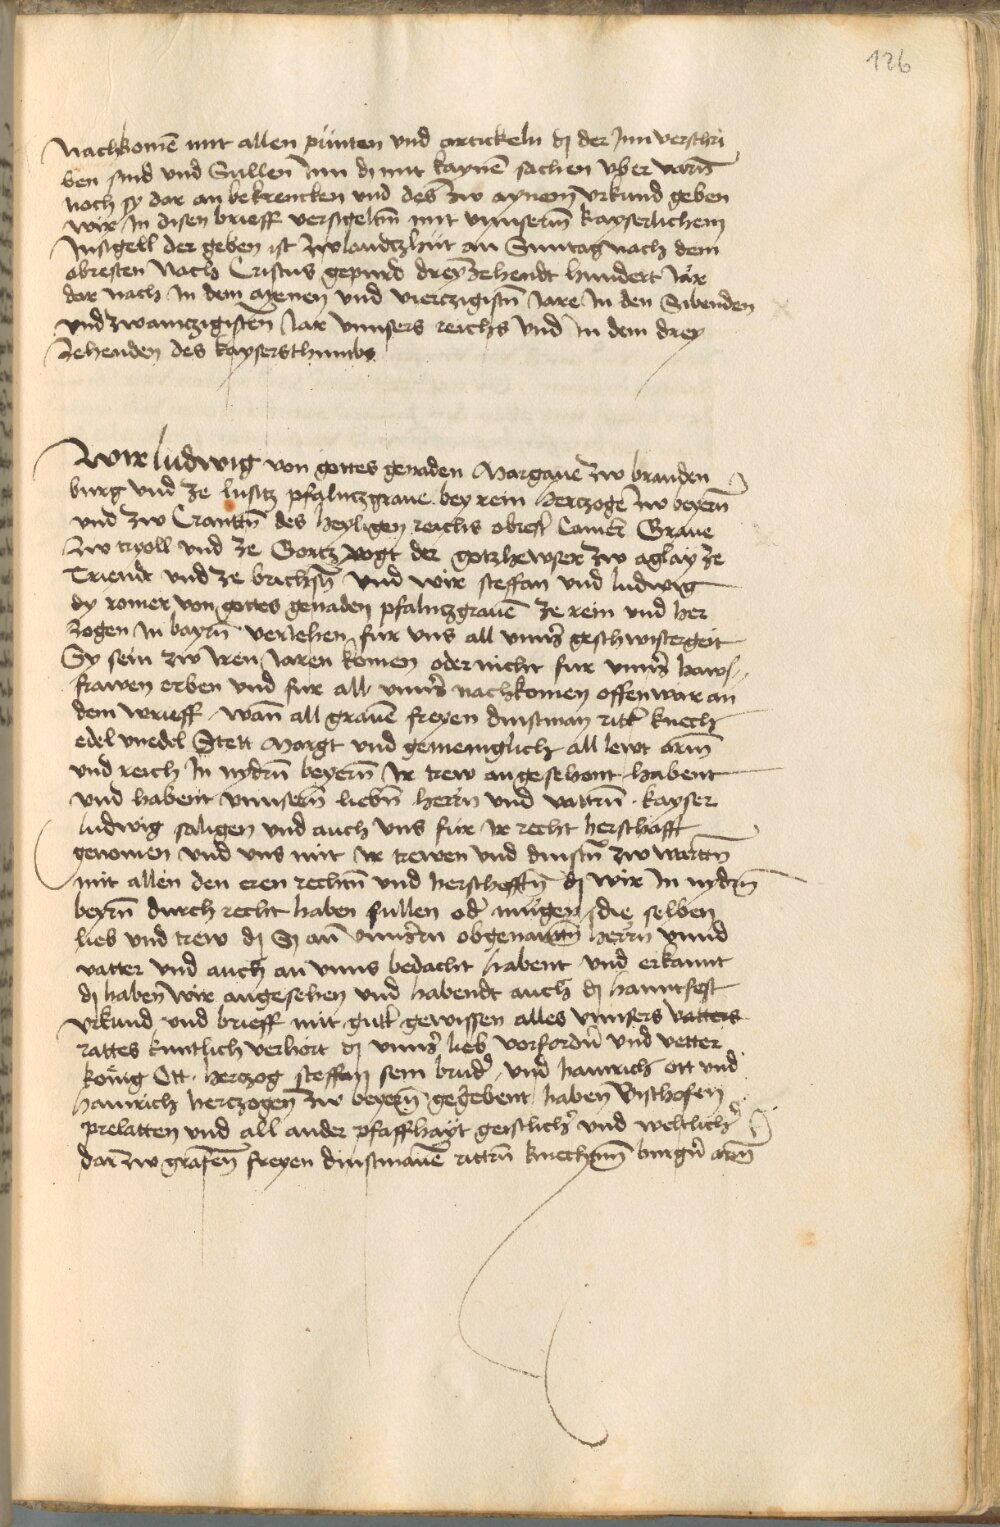 126
Nachkomē mit allen púnten vnd artickeln dj der Jnn verschri
ben sind vnd Sullen Jnn dj mit kaynē sachen vber varn̄
noch sy dar an bekrencken vnd des zw aynem vrkund geben
wir Jn disen brieff versigeltn̄ mit vnnserm̄ kayserlichem
Jnsigell der geben ist zw landtzhut an Suntag nach dem
obresten Nach Cristus gepurd dreyzehendt hundert Jar
dar nach Jn dem aynen vnd vierczigistn̄ Jare Jn den Sibenden
vnd zwainczigisten Jar vnnsers reichs vnd Jn dem drey
zehenden des kaysersthumbs
Wir ludwig von gottes genaden Margraue zw branden
burg vnd ze lusitz pfallntzgraue bey rein hertzoge zw beyern̄
vnd zw Cranttn̄ des heyligen reichs obrest Camer̄ Graue
zw tyroll vnd ze Gortz vogt der gotzhewser zw aglay ze
Triendt vnd ze brichsn̄ vnd wir steffan vnd ludwig
dy romer von gottes genaden pfallntzgrauē ze rein vnd her
zogen Jn bayrn̄ veriehen fur vns all vnnser̄ geschwistergeit
Sy sein zw Jren Jaren komen oder nicht fur vnnser̄ haws
frawen erben vnd fur all vnnser̄ nachkomen offenwar an
dem brieff wan̄ all grauē freyen dinstman ritter̄ knech
edel vnedel Stett Margt vnd gemeinglich all lewt arm̄
vnd reich Jn nydrn̄ beyern̄ Jr trew angesehent habent
vnd habent vnnsern̄ liebn̄ herrn vnd vattrn̄ kayser
ludwig saligen vnd auch vns fur Jr recht herschafft
genomen vnd vns mit Jr trewen vnd dinstn̄ zw warttn̄
mit allen den eren rechtn̄ vnd herschefftn̄ dj wir Jn nydrn̄
beyrn̄ durch recht haben sullen oder̄ mugen die selben
lieb vnd trew dj Sj an̄ vnnserm obgenanttn̄ herrn vnnd
vatter vnd auch an vnns bedacht habent vnd erkannt
dj haben wir angesehen vnd habendt auch dj hanntfest
vrkund vnd brieff mit guter̄ gewissen alles vnnsers vatters
rattes kuntlich verhort dj vnnser̄ lieb vorfordn̄ vnd vetter
konig Ott hertzog steffan sein bruder̄ vnd hainrich ott vnd
hainrich hertzogen zw beyern̄ gegebent haben Bisthofen
prelatten vnd all ander pfaffhayt geistlicher̄ vnd weltlicher̄
dar zw grafen̄ freyen dinstmanē rittrn̄ knechttn̄ burgn̄ arm̄